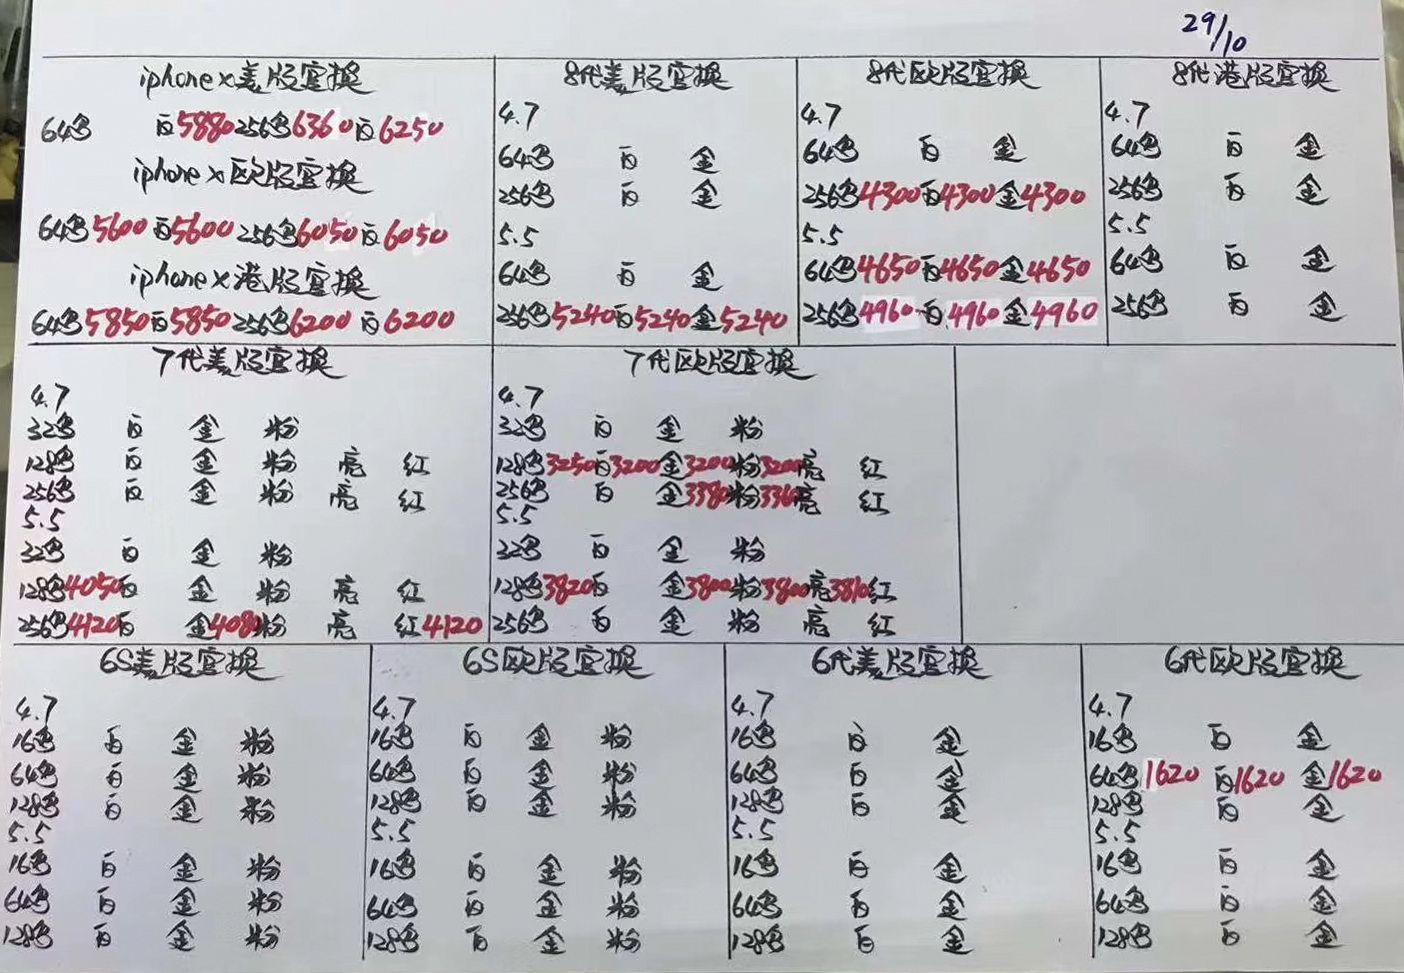 29/10
iphone x美版官换
64黑 白5880 256黑6360 白6250
iphone x欧版官换
64黑5600 白5600 256黑6050 白6050
iphone x港版官换
64黑5850 白5850 256黑6200 白6200
8代美版官换
4.7
64黑 白 金
256黑 白 金
5.5
64黑 白 金
256黑5240 白5240 金5240
8代欧版官换
4.7
64黑 白 金
256黑4300 白4300 金4300
5.5
64黑4650 白4650 金4650
256黑4960 白4960 金4960
8代港版官换
4.7
64黑 白 金
256黑 白 金
5.5
64黑 白 金
256黑 白 金
7代美版官换
4.7
32黑 白 金 粉
128黑 白 金 粉 亮 红
256黑 白 金 粉 亮 红
5.5
32黑 白 金 粉
128黑4050 白 金 粉 亮 红
256黑4120 白 金4080 粉 亮 红4120
7代欧版官换
4.7
32黑 白 金 粉
128黑3250 白3200 金3200 粉3200 亮 红
256黑 白 金3380 粉3360 亮 红
5.5
32黑 白 金 粉
128黑3820 白 金3800 粉3800 亮3810 红
256黑 白 金 粉 亮 红
6S美版官换
4.7
16黑 白 金 粉
64黑 白 金 粉
128黑 白 金 粉
5.5
16黑 白 金 粉
64黑 白 金 粉
128黑 白 金 粉
6S欧版官换
4.7
16黑 白 金 粉
64黑 白 金 粉
128黑 白 金 粉
5.5
16黑 白 金 粉
64黑 白 金 粉
128黑 白 金 粉
6代美版官换
4.7
16黑 白 金
64黑 白 金
128黑 白 金
5.5
16黑 白 金
64黑 白 金
128黑 白 金
6代欧版官换
4.7
16黑 白 金
64黑1620 白1620 金1620
128黑 白 金
5.5
16黑 白 金
64黑 白 金
128黑 白 金